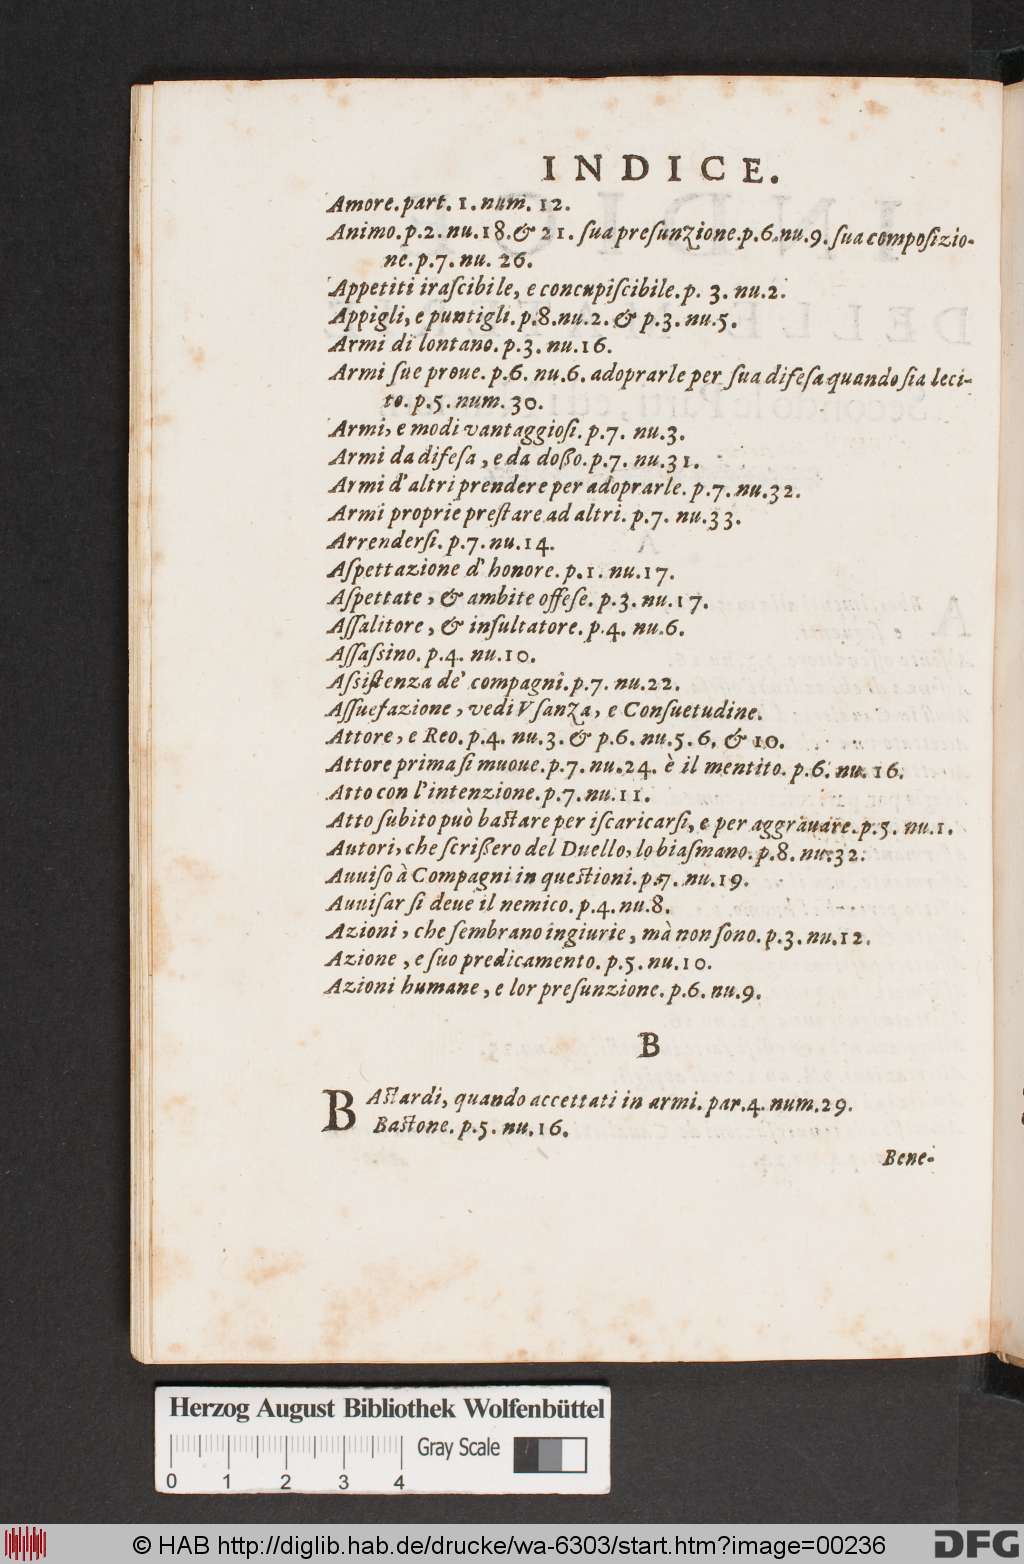 INDICE.
Amore. part. 1. num. 12.
Animo. p. 2. nu. 18. & 21. ſua preſunzione. p. 6. nu. 9. ſua compoſizio-
ne. p. 7. nu. 26.
Appetiti iraſcibile, e concupiſcibile. p. 3. nu. 2.
Appigli, e puntigli. p. 8. nu. 2. & p. 3. nu. 5.
Armi di lontano. p. 3. nu. 16.
Armi ſue proue. p. 6. nu. 6. adoprarle per ſua difeſa quando ſia leci-
to. p. 5. num. 30.
Armi, e modi vantaggioſi. p. 7. nu. 3.
Armi da difeſa, e da doßo. p. 7. nu. 31.
Armi d'altri prendere per adoprarle. p. 7. nu. 32.
Armi proprie preſtare ad altri. p. 7. nu. 33.
Arrenderſi. p. 7. nu. 14.
Aſpettazione d'honore. p. 1. nu. 17.
Aſpettate, & ambite offeſe. p. 3. nu. 17.
Aſſalitore, & inſultatore. p. 4. nu. 6.
Aſſaſsino. p. 4. nu. 10.
Aſsiſtenza de' compagni. p. 7. nu. 22.
Aſſuefazione, vedi Vſanza, e Conſuetudine.
Attore, e Reo. p. 4. nu. 3. & p. 6. nu. 5. 6. & 10.
Attore prima ſi muoue. p. 7. nu. 24. è il mentito. p. 6. nu. 16.
Atto con l'intenzione. p. 7. nu. 11.
Atto ſubito può baſtare per iſcaricarſi, e per aggrauare. p. 5. nu. 1.
Autori, che ſcrißero del Duello, lo biaſmano. p. 8. nu. 32.
Auuiſo à Compagni in queſtioni. p. 7. nu. 19.
Auuiſar ſi deue il nemico. p. 4. nu. 8.
Azioni, che ſembrano ingiurie, mà non ſono. p. 3. nu. 12.
Azione, e ſuo predicamento. p. 5. nu. 10.
Azioni humane, e lor preſunzione. p. 6. nu. 9.
B
BAſtardi, quando accettati in armi. par. 4. num. 29.
Baſtone. p. 5. nu. 16.
Bene-
Herzog August Bibliothek Wolfenbüttel
Gray Scale
0 1 2 3 4
© HAB http://diglib.hab.de/drucke/wa-6303/start.htm?image=00236
DFG